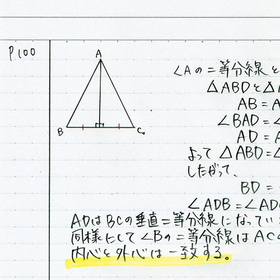 P100
A
B
C
∠Aの二等分線と
△ABDと△A
AB=A
∠BAD=∠
AD=A
よって △ABD≡△
したがって、
BD=
∠ADB=∠AD
ADはBCの垂直二等分線になってい
同様にして∠Bの二等分線はAC
内心と外心は一致する。